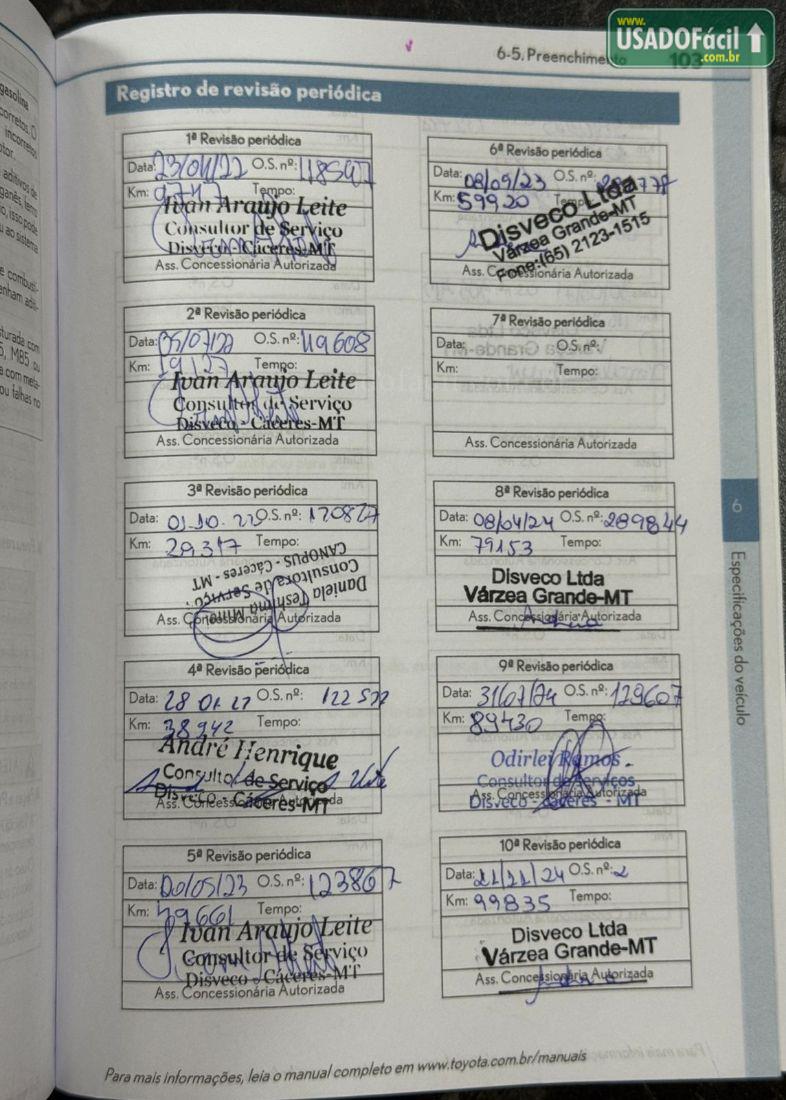 www.
USADOFácil
.com.br
6-5. Preenchimento
103
Registro de revisão periódica
1ª Revisão periódica
Data: 23/04/22 O.S. nº: 118597
Km: 9747 Tempo:
Ivan Araujo Leite
Consultor de Serviço
Disveco - Cáceres-MT
Ass. Concessionária Autorizada
2ª Revisão periódica
Data: 05/07/22 O.S. nº: 119608
Km: 19127 Tempo:
Ivan Araujo Leite
Consultor de Serviço
Disveco - Cáceres-MT
Ass. Concessionária Autorizada
3ª Revisão periódica
Data: 01.10.22 O.S. nº: 120827
Km: 29317 Tempo:
Daniela Teshima
Consultora de Serviço
CANOPUS - Cáceres - MT
Ass. Concessionária Autorizada
4ª Revisão periódica
Data: 28 01 O.S. nº: 122
Km: 38942 Tempo:
André Henrique
Consultor de Serviço
Disveco - Cáceres-MT
Ass. Concessionária Autorizada
5ª Revisão periódica
Data: 20/05/23 O.S. nº: 123867
Km: 49661 Tempo:
Ivan Araujo Leite
Consultor de Serviço
Disveco - Cáceres-MT
Ass. Concessionária Autorizada
6ª Revisão periódica
Data: 08/09/23 O.S. nº:
Km: 59920 Tempo:
Disveco Ltda
Várzea Grande-MT
Fone:(65) 2123-1515
Ass. Concessionária Autorizada
7ª Revisão periódica
Data: O.S. nº:
Km: Tempo:
Ass. Concessionária Autorizada
8ª Revisão periódica
Data: 08/04/24 O.S. nº: 289844
Km: 79153 Tempo:
Disveco Ltda
Várzea Grande-MT
Ass. Concessionária Autorizada
9ª Revisão periódica
Data: 31/07/24 O.S. nº: 129607
Km: 89430 Tempo:
Odirlei Ramos
Consultor de Serviços
Disveco - Cáceres - MT
Ass. Concessionária Autorizada
10ª Revisão periódica
Data: 21/11/24 O.S. nº: 2
Km: 99835 Tempo:
Disveco Ltda
Várzea Grande-MT
Ass. Concessionária Autorizada
6
Especificações do veículo
Para mais informações, leia o manual completo em www.toyota.com.br/manuais